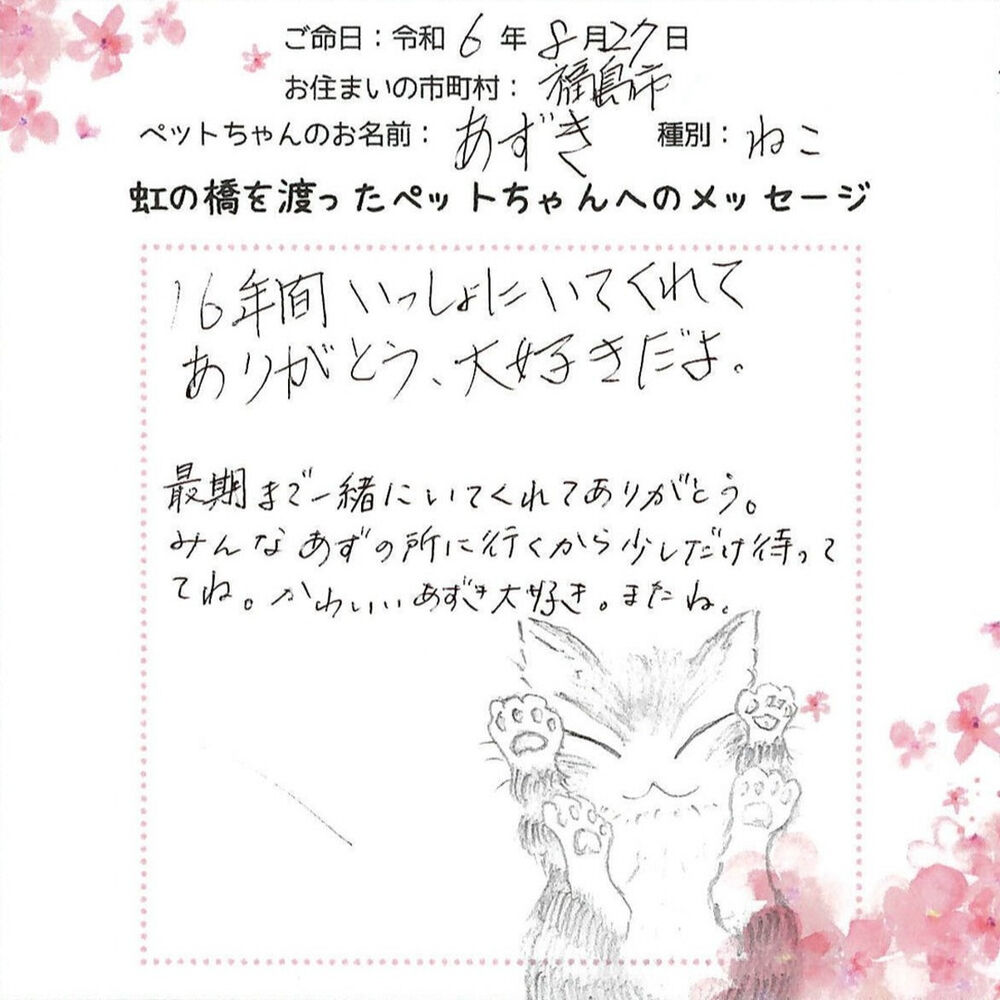 ご命日：令和 6 年 8月27日
お住まいの市町村： 福島市
ペットちゃんのお名前： あずき 種別： ねこ
虹の橋を渡ったペットちゃんへのメッセージ
16年間いっしょにいてくれて
ありがとう、大好きだよ。
最期まで一緒にいてくれてありがとう。
みんなあずの所に行くから少しだけ待って
てね。かわいいあずき大好き。またね。